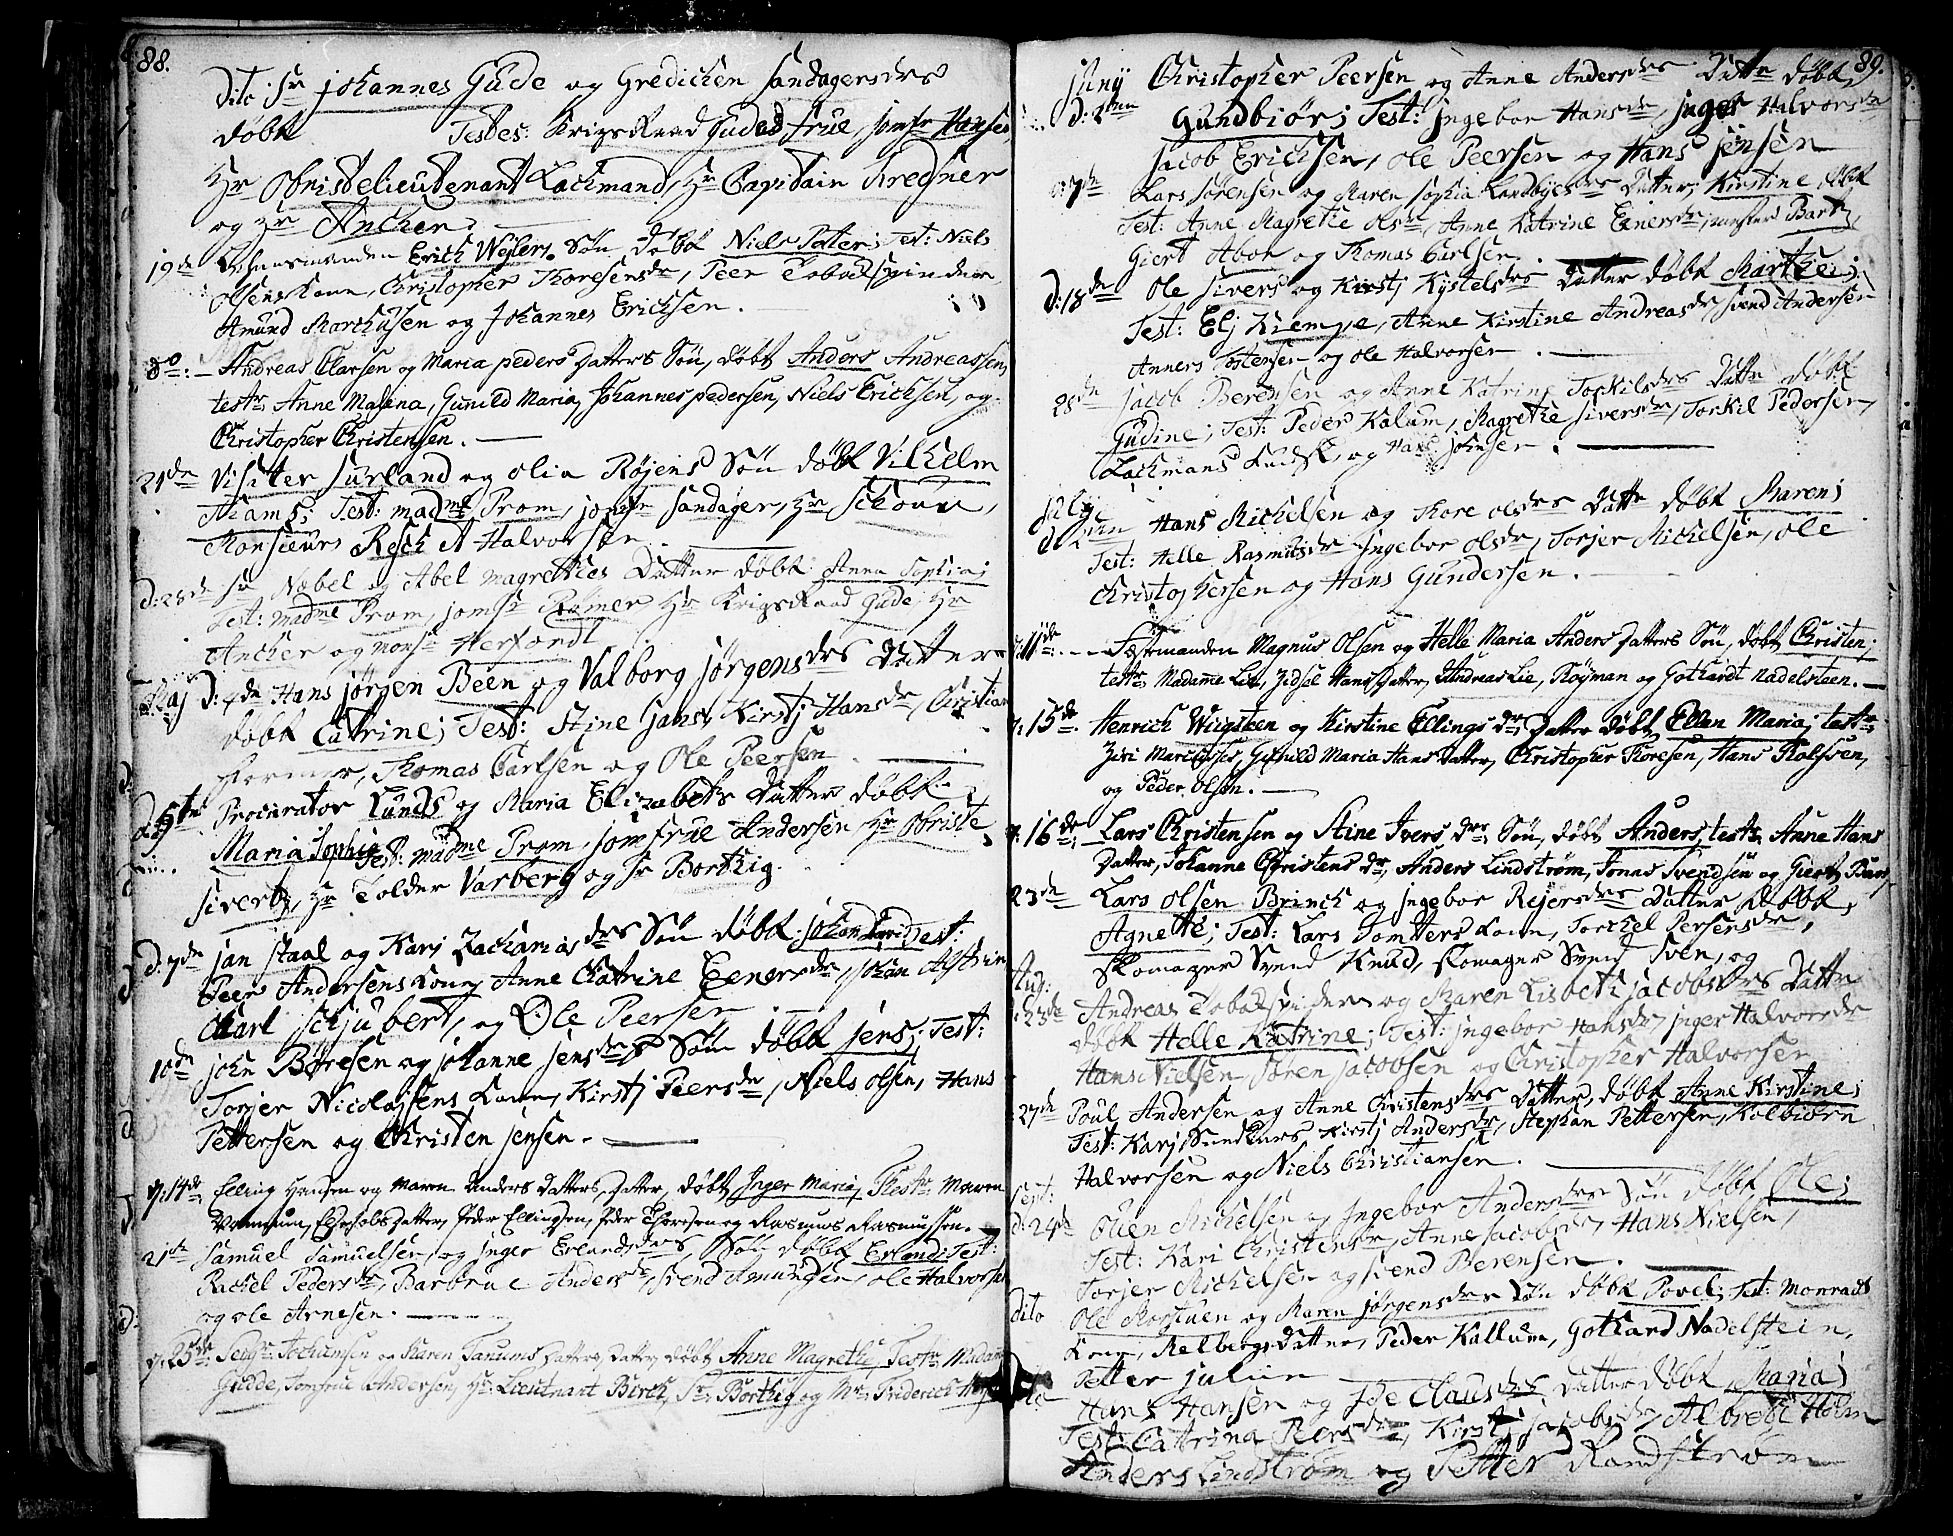 88.
Dito Sr Johannes Gude og Gredichen Sandagersdrs
døbt Testes: Krigs Raad Gudes frue, jomfr Hansen,
Hr Obristelieutenant Lachmand, Hr Capitain Kregner
og Hr Ancher.
19de Erich Weylers Søn døbt Niels Peter; Test: Niels
Olsens Kone, Christopher Thoresensdr, Peer Tobakspinder,
Amund Marchusen og Johannes Erichsen.
do: Andreas Clarsen og Maria peders Datters Søn, døbt Anders Andreassen,
testr Anne Malena, Gunild Maria, Johannes pedersen, Niels Erichsen, og
Christopher Christensen.
21de Visiter Surland og Olia Røjens Søn døbt Vilhelm
Adams; Test: madme Prom, jomfr Sandager, Hr Schouw,
Monsieurs Resch A Halvorsen.
D: 28de Sr Nobel og Abel Magrethes Datter døbt Anna Sophia;
Test: madme Prom, jomfr Rømer Hr Krigs Raad Gude, Hr
Ancher og mons Herfordt
Maj D: 4de Hans Jørgen Been og Valborg Jørgensdrs Datter
døbt Catrine; Test: Stine Jans, Kirstj Hansdr, Christian
Former, Thomas Carlsen og Ole Peersen.
D: 5te Procurator Lunds og Maria Elizabets Datter døbt
Maria Sophia Test: madme Prom, jomfrue Andersen, Hr Obriste
Sivertz, Hr Tolder Varberg og Sr Borthig.
D: 7de Jan Staal og Karj Zachariasdrs Søn døbt Johan David Test:
Peer Andersens Kone, Anne Catrine Eenersdr, Johan Alstrin
Carl Schjubert, og Ole Peersen
10de John Børesen og Johanne Jensdrs Søn døbt Jens; Test:
Torjer Nicolajsens Kone, Kirstj Peersdr, Niels Olsen, Hans
Pettersen og Christen Jensen.
d: 14de Elling Hansen og Maren Anders Datters Datter, døbt Inger Maria, Testr Maren
Else Jobs Datter, Peder Ellingsen, Peder Thoresen og Rasmus Rasmussen.
21de Samuel Samuelsen og Inger Erlandsdrs Søn døbt Erland; Test:
Rachel Pedersdr, Barbrue Andersdr, Svend Amundsen, Ole Halvorsen
og Ole Arnesen.
d: 25de Jochumsen og Karen Tanums Datters Datter døbt Anne Magrethe, Testr Madam
Gudde, Jomfrue Andersen, Hr Lieutnant Birch, Sr Borthig og Mr Friderich

89.
Junij Christopher Peersen og Anne Andersdrs Dattr døbt
D: 2den Gundbiør; Test: Ingebor Hansdr, Inger Halvorsdr
Jacob Erichsen, Ole Peersen og Hans Jensen
D: 7de Lars Sørensen og Maren Sophia Landbyes Datter, Kirstine, døbt
Test: Anne Magrethe Olsdr, Anne Katrine Eenersdr, Bartz,
Giert Abor og Thomas Carlsen.
D: 18de Ole Sivers og Kirstj Kystelsdrs Datter døbt Marthe;
Test: Elj Kiempe, Anne Kirstine Andreasdr Svend Andersen
Anners Tostensen og Ole Halvorsen.
28de Jacob Berentsen og Anne Katrine Torkilsdrs Dattr døbt
Gudine; Test: Peder Kalum, Magrethe Siversdr, Torkil Pedersen,
Lachmans Kudsk, og Hans Johnsen.
Julij
d: 2den Hans Michelsen og Thore Olsdrs Dattr døbt Maren;
Test: Helle Rasmusdr Ingebor Olsdr, Torjer Michelsen, Ole
Christophersen og Hans Gundersen.
d: 11de: Fæstemanden Magnus Olsen og Helle Maria Anders Datters Søn, døbt Christen;
testr: Madame Lie, Zidsel Hans Datter, Andreas Lie, Røyman og Gothardt Nadelsteen.
d: 15de. Henrich Wirgsteen og Kirstine Ellings dr: Datter døbt Ellen Maria; testr:
Ziri Gunild Maria Hans Datter, Christopher Thoresen, Hans Tholfsen,
og Peder Olsen.
d: 16de Lars Christensen og Stine Ivers drs Søn, døbt Anders, testr: Anne Hans
Datter, Johanne Christens dr, Anders Lindstrøm, Jonas Svendsen og Giert Bar
23de Lars Olsen Brinch og Ingebor Rejersdrs Datter døbt,
Agnette; Test: Lars Tomters Kone, Torchel Persensdr,
Skomager Svend Knud, skomager Svend Sven, og
Aug:
d: 23de Andreas Tobakspinder og Maren Lisbeth Jacobsdrs Dattr
døbt Helle Katrine; Test: Ingebor Hansdr, Inger Halvorsdr
Hans Nielsen, Søren Jacobsen og Christopher Halvorsen
27de Poul Andersen og Anne Christensdrs Datter, døbt Anne Kirstine;
Test: Karj Kirstj Andersdr, Stephan Pettersen, Kolbiørn
Halvorsen og Niels Christiansen.
Sept:
d: 24de Ouen Michelsen og Ingebor Andersdrs Søn døbt Ole;
Test: Kari Christensdr, Anne Jacobsdr, Hans Nielsen,
Torjer Michelsen og Svend Berensen.
dito Ole Morstuen og Maren Jørgensdrs Søn døbt Povel; Test: Monrads
Kone, Relbergs Datter, Peder Kallum, Gothard Nadelstein,
Petter Julin
dito Hans Hansen og Ide Clausdrs Datter døbt Maria;
Test: Cathrina Peersdr, Kirstj Jacobsdr, Albregt Holm
Anders Lindstrøm og Petter Randstrøm